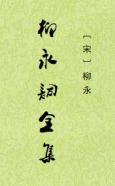 〔宋〕柳永
柳永詞全集